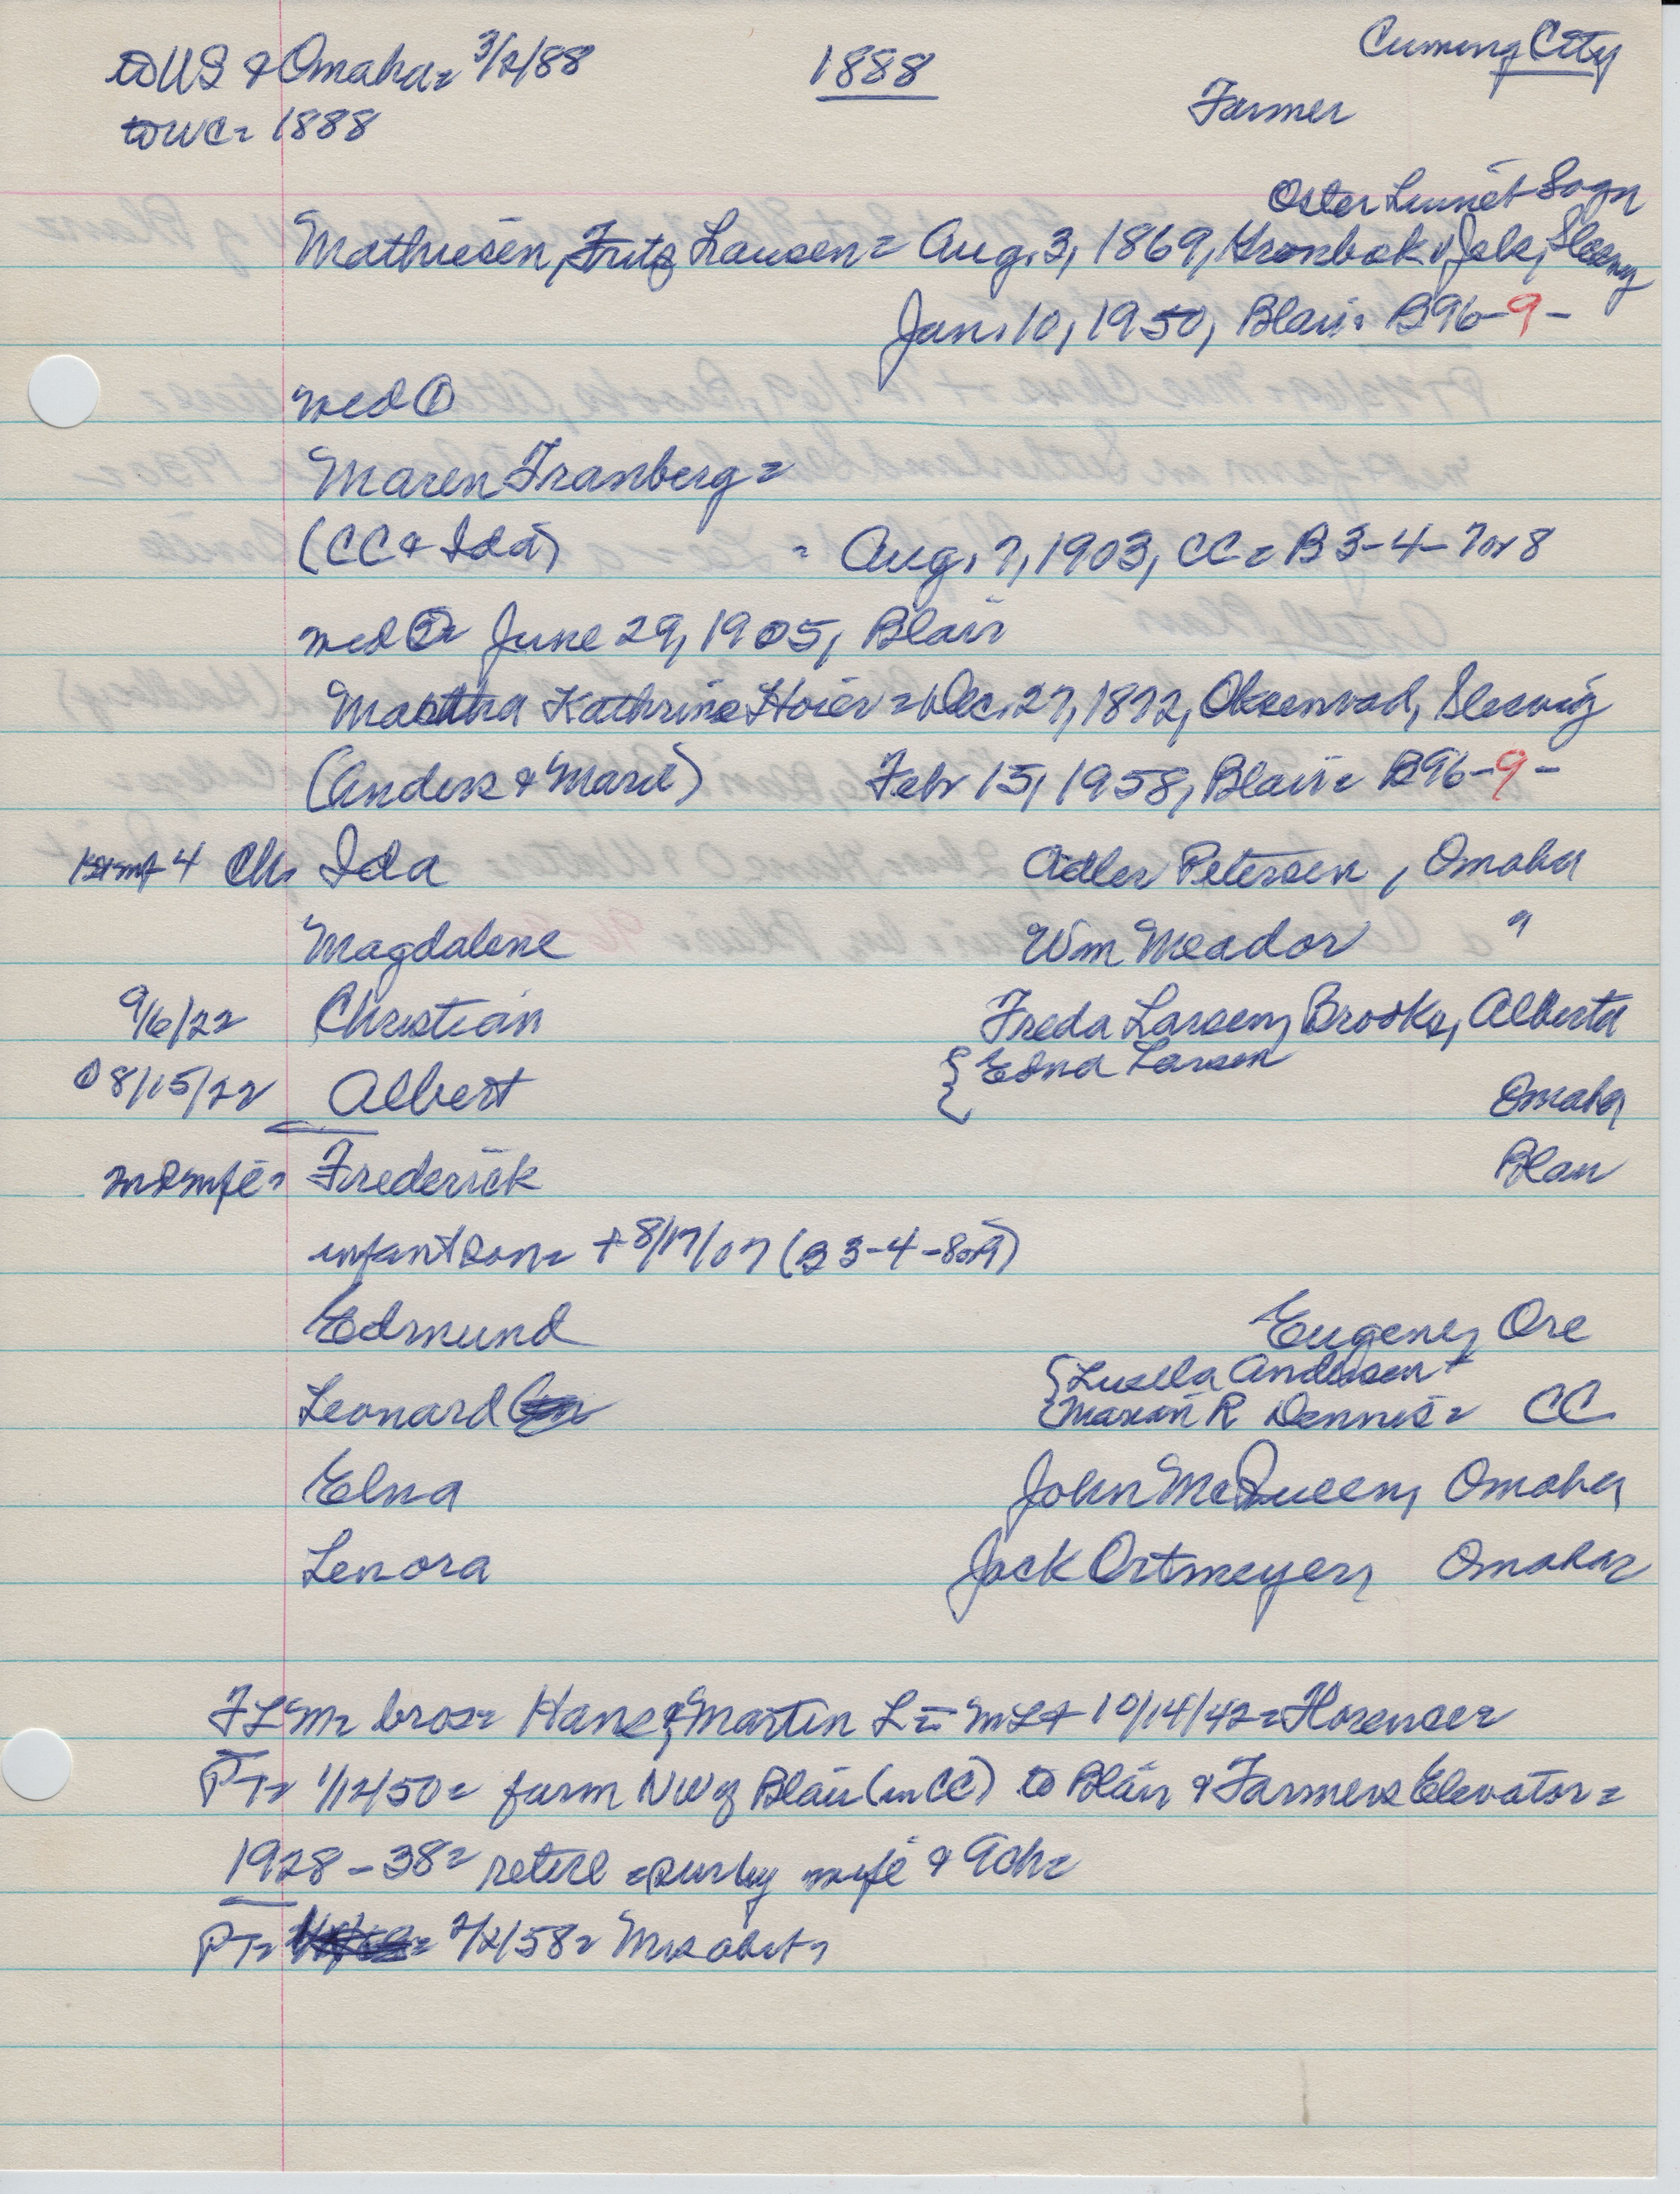 to US & Omaha= 3/2/88
1888
Cuming City
to WC= 1888
Farmer
Oster Linnet Sogn
Mathiesen, Fritz Lausen= Aug. 3, 1869, Kronbek v Jels, Slesvig
Jan. 10, 1950, Blair= B96-9-
wed ①
Maren Tranberg=
(CC & Ida) = Aug. 7, 1903, CC= B 3-4-7or8
wed ②= June 29, 1905, Blair
Martha Kathrine Hoier= Dec. 27, 1872, Oksenvad, Slesvig
(Anders & Marie) Febr 15, 1958, Blair= B96-9-
1st wf 4 Ch. Ida Adler Petersen, Omaha
Magdalene Wm Meador "
9/6/22 Christian Freda Larsen, Brooks, Alberta
8/15/22 Albert { Edna Larsen Omaha
2nd wife= Frederick Blair
infant son= +8/17/07 (B 3-4-8or9)
Edmund Eugene, Ore
Leonard { Luella Andersen +
{ Marion R Dennis= CC
Elna John McQueen, Omaha
Lenora Jack Ortmeyer, Omaha=
FLM= bros= Hans & Martin L= ML+ 10/14/42= Florence
PT= 1/12/50= farm NW of Blair (in CC) to Blair & Farmers Elevator=
1928-38= retire =surby wife & 9ch=
PT= 2/2/58= Mrs obit=